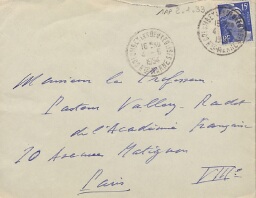 15
Monsieur le Professeur
Pasteur Vallery-Radot
de l'Académie Française
20 Avenue Matignon
VIIIe
Paris